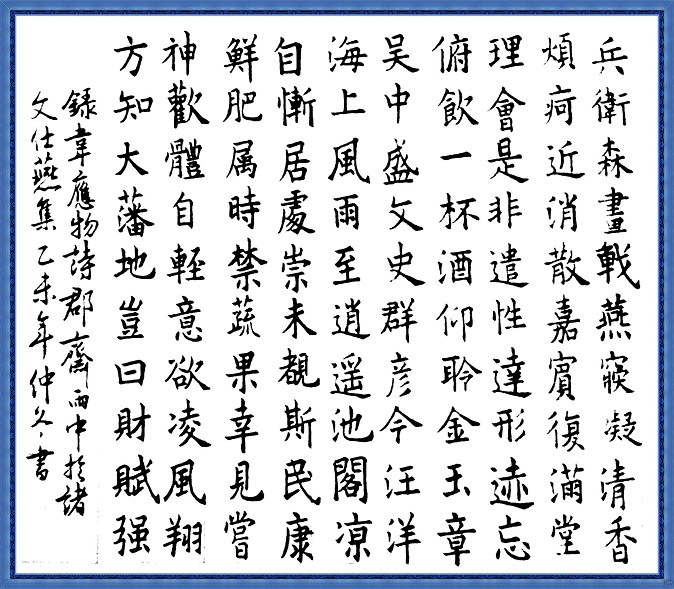 兵衛森畫戟燕寢凝清香
煩疴近消散嘉賓復滿堂
理會是非遣性達形迹忘
俯飲一杯酒仰聆金玉章
吳中盛文史群彥今汪洋
海上風雨至逍遥池閣凉
自慚居處崇未覩斯民康
鮮肥属時禁蔬果幸見嘗
神歡體自輕意欲凌風翔
方知大藩地豈曰財賦强
錄韋應物詩郡齋雨中於諸
文仕燕集乙未年仲冬書